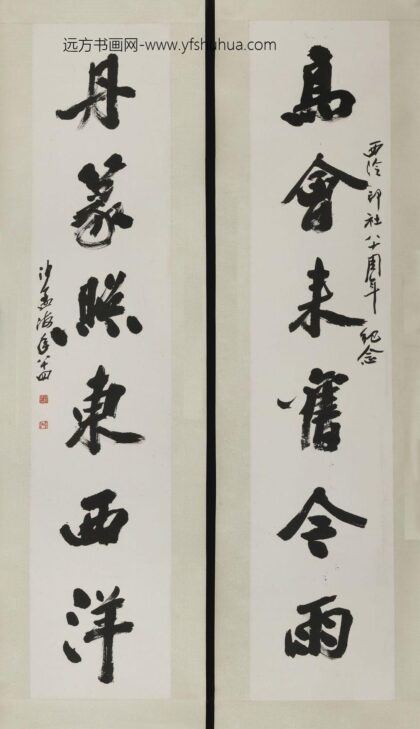 远方书画网-www.yfshuhua.com
高會来舊今雨
西泠印社八十周年紀念
丹篆照東西洋
沙孟海年八四